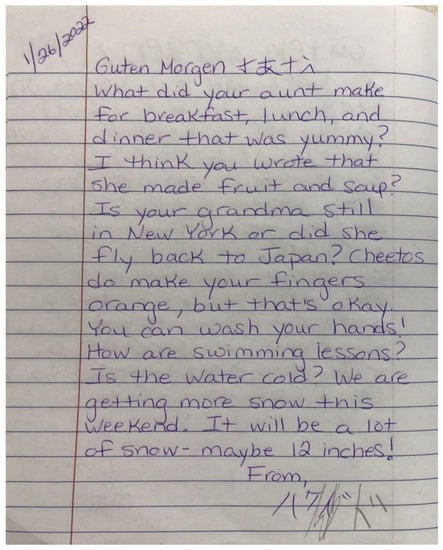 1/26/2022
Guten Morgen
What did your aunt make
for breakfast, lunch, and
dinner that was yummy?
I think you wrote that
she made fruit and soup?
Is your grandma still
in New York or did she
fly back to Japan? Cheetos
do make your fingers
orange, but that's okay.
You can wash your hands!
How are swimming lessons?
Is the water cold? We are
getting more snow this
weekend. It will be a lot
of snow - maybe 12 inches!
From,